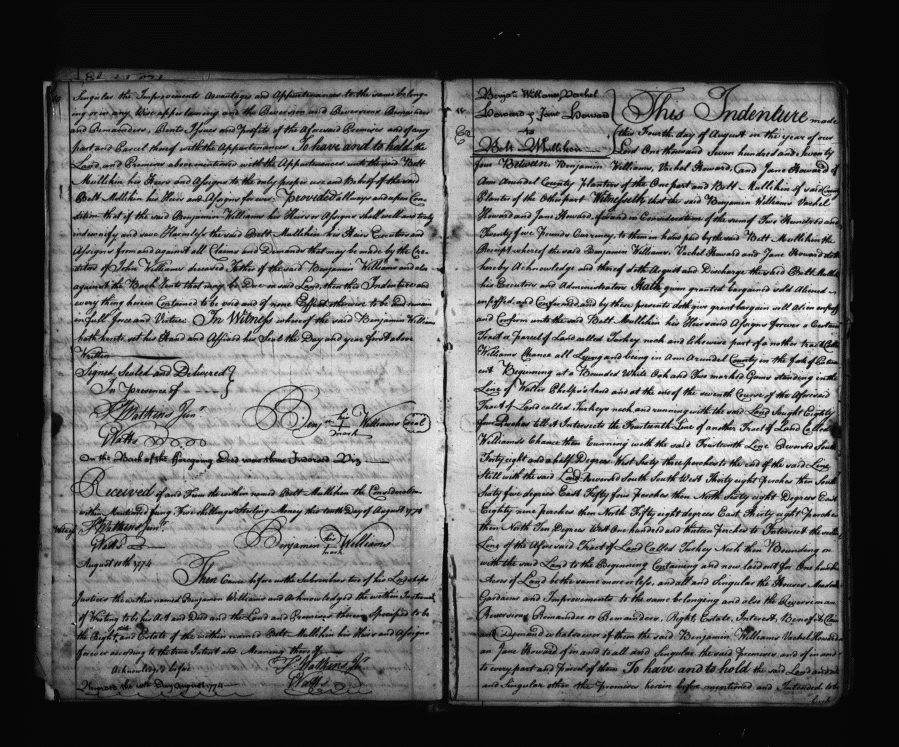 Singular the Improvements Advantages and Appurtenances to the same belong-
ing or in any Wise appertaining and the Reversion and Reversions Remainder
and Remainders, Rents Issues and Profits of the Aforesaid Premises and of any
part and Parcel thereof with the Appurtenances To have and to hold the
Land and Premises above mentioned with the Appurtenances unto the said Belt
Mullikin his Heirs and Assigns to the only proper use and Behoof of the said
Belt Mullikin his Heirs and Assigns for ever Provided always and upon Con
dition that if the said Benjamin Williams his Heirs or Assigns shall well and truly
indemnify and save Harmless the said Belt Mullikin his Heirs Executors and
Assigns from and against all Claims and Demands that may be made by the Cre-
ditors of John Williams deceased Father of the said Benjamin Williams and also
against the Back Rents that may be Due on said Land, then this Indenture and
every thing herein Contained to be void and of none Effect otherwise to be & remain
in full force and Virtue. In Witness whereof the said Benjamin Williams
hath hereto set his Hand and Affixed his Seal the Day and year first above
Written
Signed Sealed and Delivered
In Presence of
T. Watkins Junr
Benjn his mark Williams Seal
On the Back of the foregoing Deed was thus Indorsed Viz
Received of and from the within named Belt Mullikin the Consideration
within Mentioned being Five Shillings Sterling Money this tenth Day of August 1774
T. Watkins Junr
Benjamin his mark Williams
August 10th 1774
Then Came before us the Subscribers two of his Lordships
Justices the within named Benjamin Williams and Acknowledged the within Instrument
of Writing to be his Act and Deed and the Land and Premises therein Specified to be
the Right and Estate of the within named Belt Mullikin his Heirs and Assigns
forever according to the true Intent and Meaning thereof
T. Watkins Jr
Acknowledged before
the 10th Day August 1774
Benjn Williams Vachel
Howard & Jane Howard
to
Belt Mullikin
This Indenture made
this Fourth day of August in the year of our
Lord One thousand Seven hundred and seventy
four Between Benjamin Williams, Vachel Howard, and Jane Howard of
Ann Arundel County Planters of the One part and Belt Mullikin of said County
Planter of the Other part Witnesseth that the said Benjamin Williams Vachel
Howard and Jane Howard, for and in Consideration of the sum of Two Hundred and
Twenty five Pounds Currency, to them in hand paid by the said Belt Mullikin the
Receipt whereof the said Benjamin Williams, Vachel Howard and Jane Howard doth
hereby Acknowledge and thereof doth Acquit and Discharge the said Belt Mullikin
his Executors and Administrators Hath given granted bargained sold Aliened
enfeoffed and Confirmed and by these presents doth give grant bargain sell Alien enfeoff
and Confirm unto the said Belt Mullikin his Heirs and Assigns forever a Certain
Tract or parcel of Land called Turkey neck and likewise part of a nother tract Called
Williams Chance all Lying and being in Ann Arundel County in the fork of Patux
ent Beginning at a Bounded White Oak and Two marked Gums standing in the
Line of Walter Phelps's land and at the end of the seventh Course of the Aforesaid
Tract of Land called Turkey neck and running with the said Land Eighty
four Perches till it Intersects the Fourteenth Line of another Tract of Land Called
Williams Chance then Running with the said Fourteenth Line Reversed South
Forty eight and a half Degrees West Sixty three perches to the end of the said Line
Still with the said Land Reversed South South West Thirty eight Perches then South
Sixty five degrees East Fifty four perches then North Sixty eight Degrees East
Eighty nine perches then North Fifty eight degrees East Thirty eight Perches
then North Ten Degrees West One hundred and thirteen Perches to Intersect the
Line of the Aforesaid Tract of Land Called Turkey Neck then Bounding on
with the said Land to the Beginning Containing and now laid out for One hundred
Acres of Land be the same more or less, and all and Singular the Houses
Gardains and Improvements to the same belonging and also the Reversion and
Reversions Remainder & Remainders, Right, Estate, Interest, Benefit, Claim
and Demand whatsoever of them the said Benjamin Williams Vachel Howard
an Jane Howard of in and to all and Singular the said Premises and of in and
to every part and parcel of them To have and to hold the said Land and all
and Singular other the Premises herein before mentioned and Intended to be